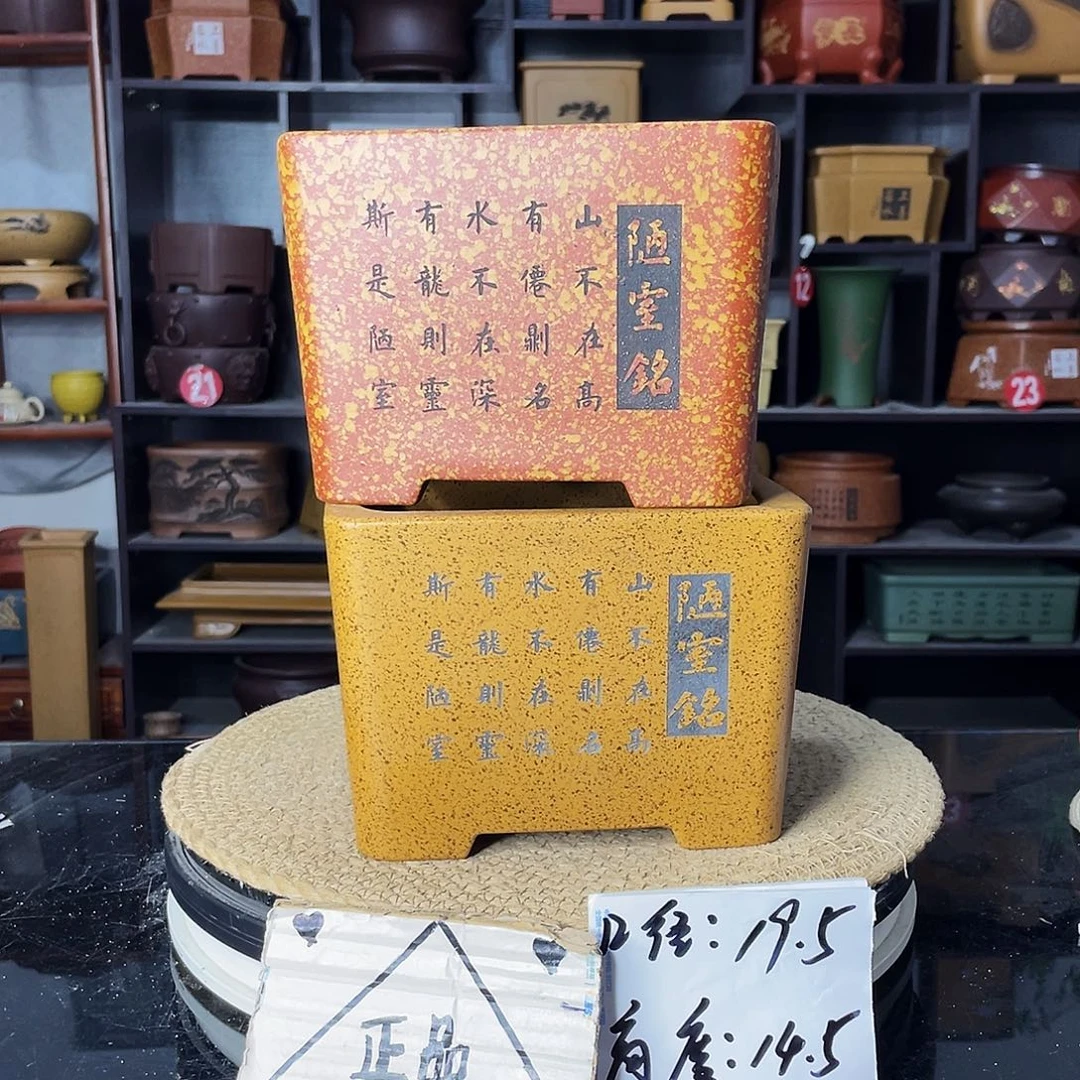 陋室銘
山不在高
有僊則名
水不在深
有龍則靈
斯是陋室
陋室銘
山不在高
有僊則名
水不在深
有龍則靈
斯是陋室
正品
口径：19.5
高度：14.5
21
12
23